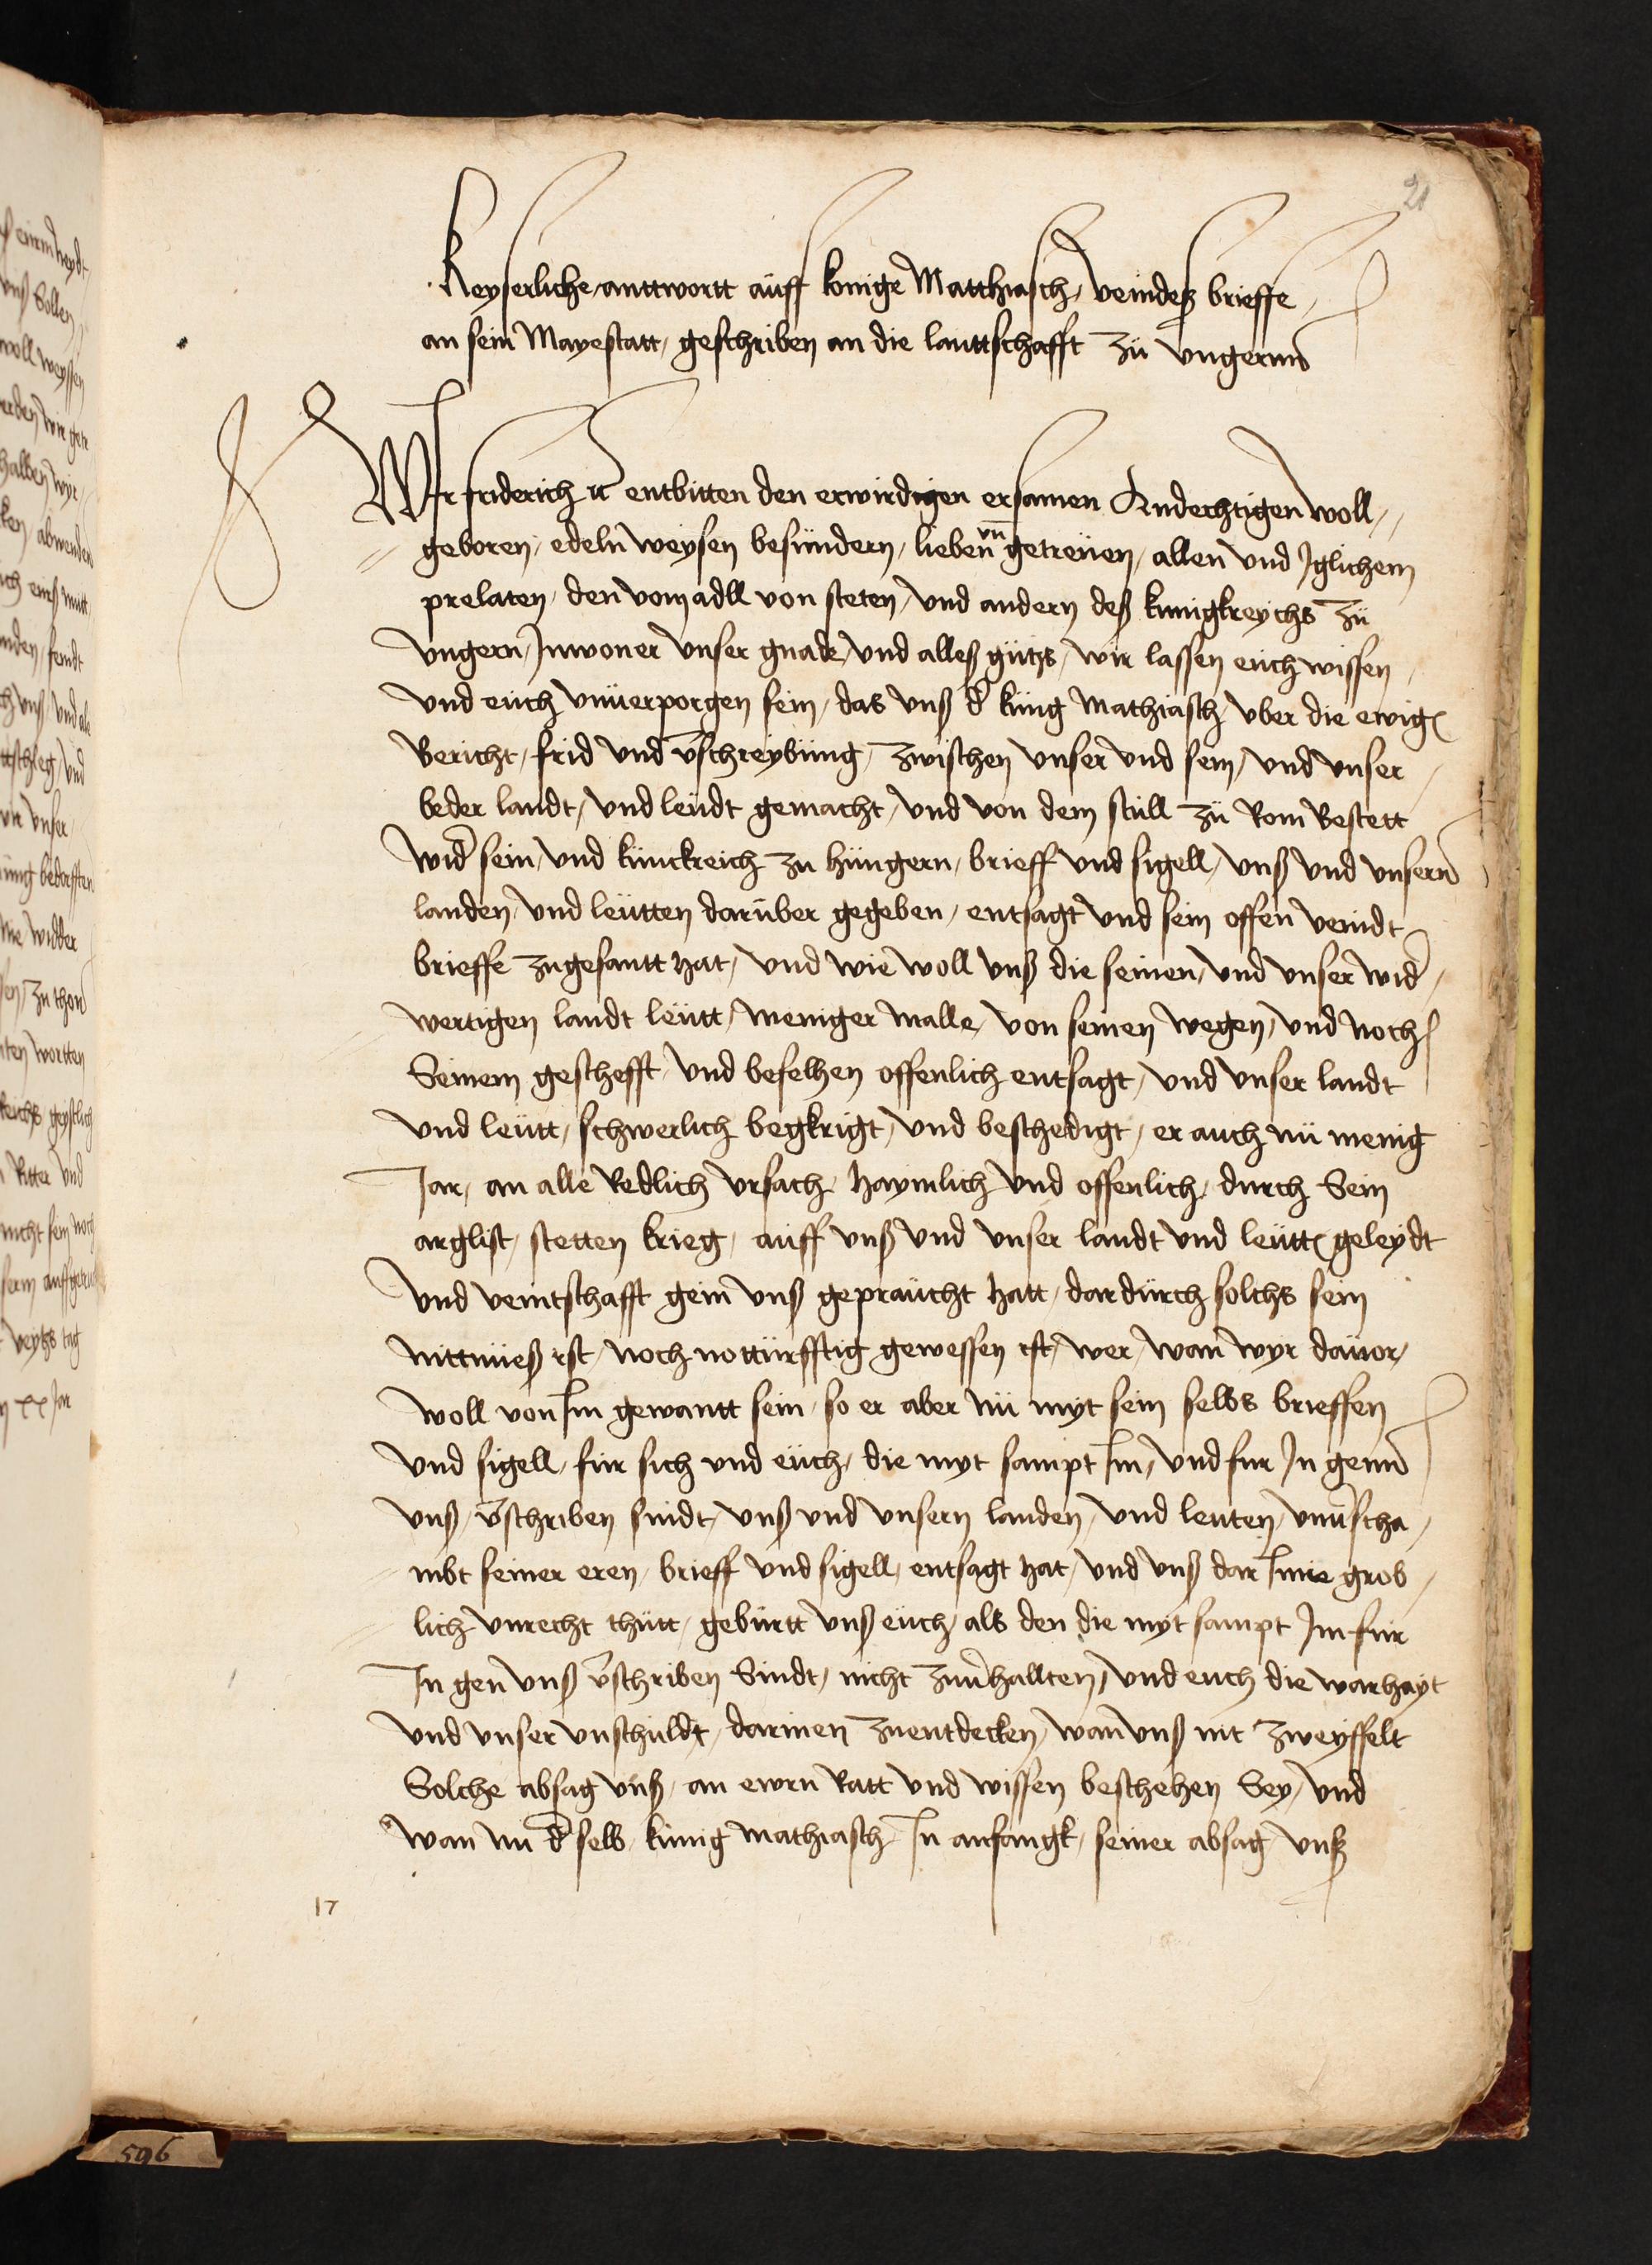 21
Keyserliche anttwortt auff konige Matthiasch veindeß brieffe
an sein Mayestatt geschriben an die lanttschafft zü vngernn
Wir friderich ꝛc entbitten den erwirdigen ersamen Andechtigen woll
geboren edeln weysen besündern lieben vn̄ getreüen allen vnd Jglichem
prelaten den vom adll von steten vnd andern deß kunigkreychs zü
vngern Jnwoner vnser gnade vnd alleß gütz wir lassen euch wissen
vnd euch vnüerporgen sein das vnß d̕ küng Mathiasch vber die ewig
Bericht frid vnd v̄schreybüng zwischen vnser vnd sein vnd vnser
beder landt vnd leüdt gemacht vnd von dem stüll zü Rom Bestett
wid̕ sein vnd künckreich zu hüngern brieff vnd sigell vnß vnd vnsern
landen vnd leütten darüber gegeben entsagt vnd sein offen veindt
brieffe zugesantt hat vnd wie woll vnß die seinen vnd vnser wid̕
wertigen landt leütt meniger malle von seinen wegen vnd noch
Seinem geschefft vnd befelhen offenlich entsagt vnd vnser landt
vnd leütt schwerlich begkrigt vnd beschedigt er auch nü menig
Jar an alle Redlich vrsach haymlich vnd offenlich durch Sein
arglist stetten krieg auff vnß vnd vnser landt vnd leütt geleydt
vnd veintschafft gein vnß gepraücht hatt dardürch solchs sein
nittnüeß ist noch nottürfftig gewessen ist wer wan wyr däuor
woll von Jm gewantt sein so er aber nü myt sein selbs brieffen
vnd sigell für sich vnd eüch die myt sampt Jm vnd fur Jn genn
vnß v̄schriben sindt vnß vnd vnsern landen vnd leuten vnüscha
mbt seiner eren brieff vnd sigell entsagt hat vnd vnß dar Jnne grob
lich vnrecht thütt gebürtt vnß eüch als den die myt sampt Jm für
Jn gen vnß v̄schriben Sindt nicht zuu̕hallten vnd euch die warhayt
vnd vnser vnschüldt darinen zuentdecken wan vnß nit zweyffelt
Solche absag vnß an ewrn Ratt vnd wissen beschehen Sey vnd
wan nu d̕ selb künig Mathiasch Jn anfangk seiner absag vnß
17
596